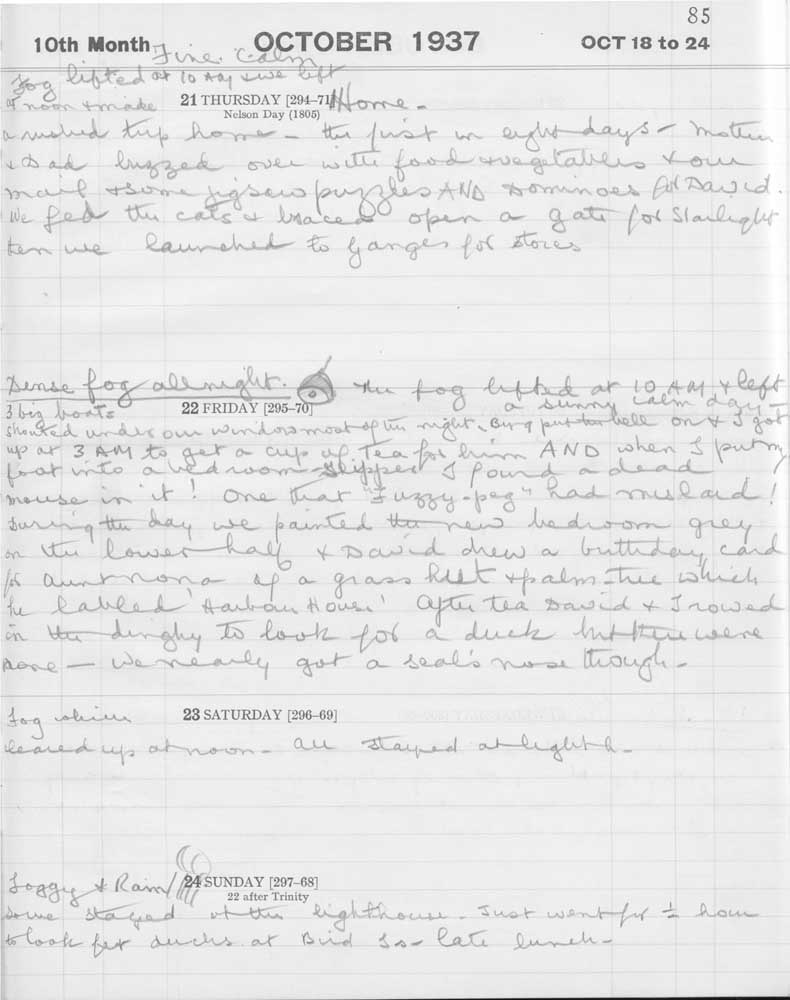 85
10th Month OCTOBER 1937 OCT 18 to 24
Fine. Calm
Fog lifted at 10 AM & we left
at noon & made 21 THURSDAY [294–71] Home –
Nelson Day (1805)
a rushed trip home – the first in eight days – Mother
& Dad buzzed over with food & vegetables & our
mail & some jigsaw puzzles AND Dominoes for David.
We fed the cats & braced open a gate for Starlight
then we launched to Ganges for stores
Dense fog all night. The fog lifted at 10 AM & left
a sunny calm day –
3 big boats 22 FRIDAY [295–70]
shouted under our window most of the night, put bell on & I got
up at 3 AM to get a cup of Tea for him AND when I put my
foot into a bedroom slipper I found a dead
mouse in it! One that "Fuzzy-peg" had mislaid!
During the day we painted the new bedroom grey
on the lower half & David drew a birthday card
for Aunt Nona of a grass hut & palm-tree which
he labled 'Harbour House' After tea David & I rowed
in the dinghy to look for a duck but there were
none – we nearly got a seal's nose though –
Fog which 23 SATURDAY [296–69]
cleared up at noon – All stayed at light h –
Foggy & Rain 24 SUNDAY [297–68]
22 after Trinity
some stayed at the lighthouse – Just went for ½ hour
to look for ducks at Bird Is – late lunch –